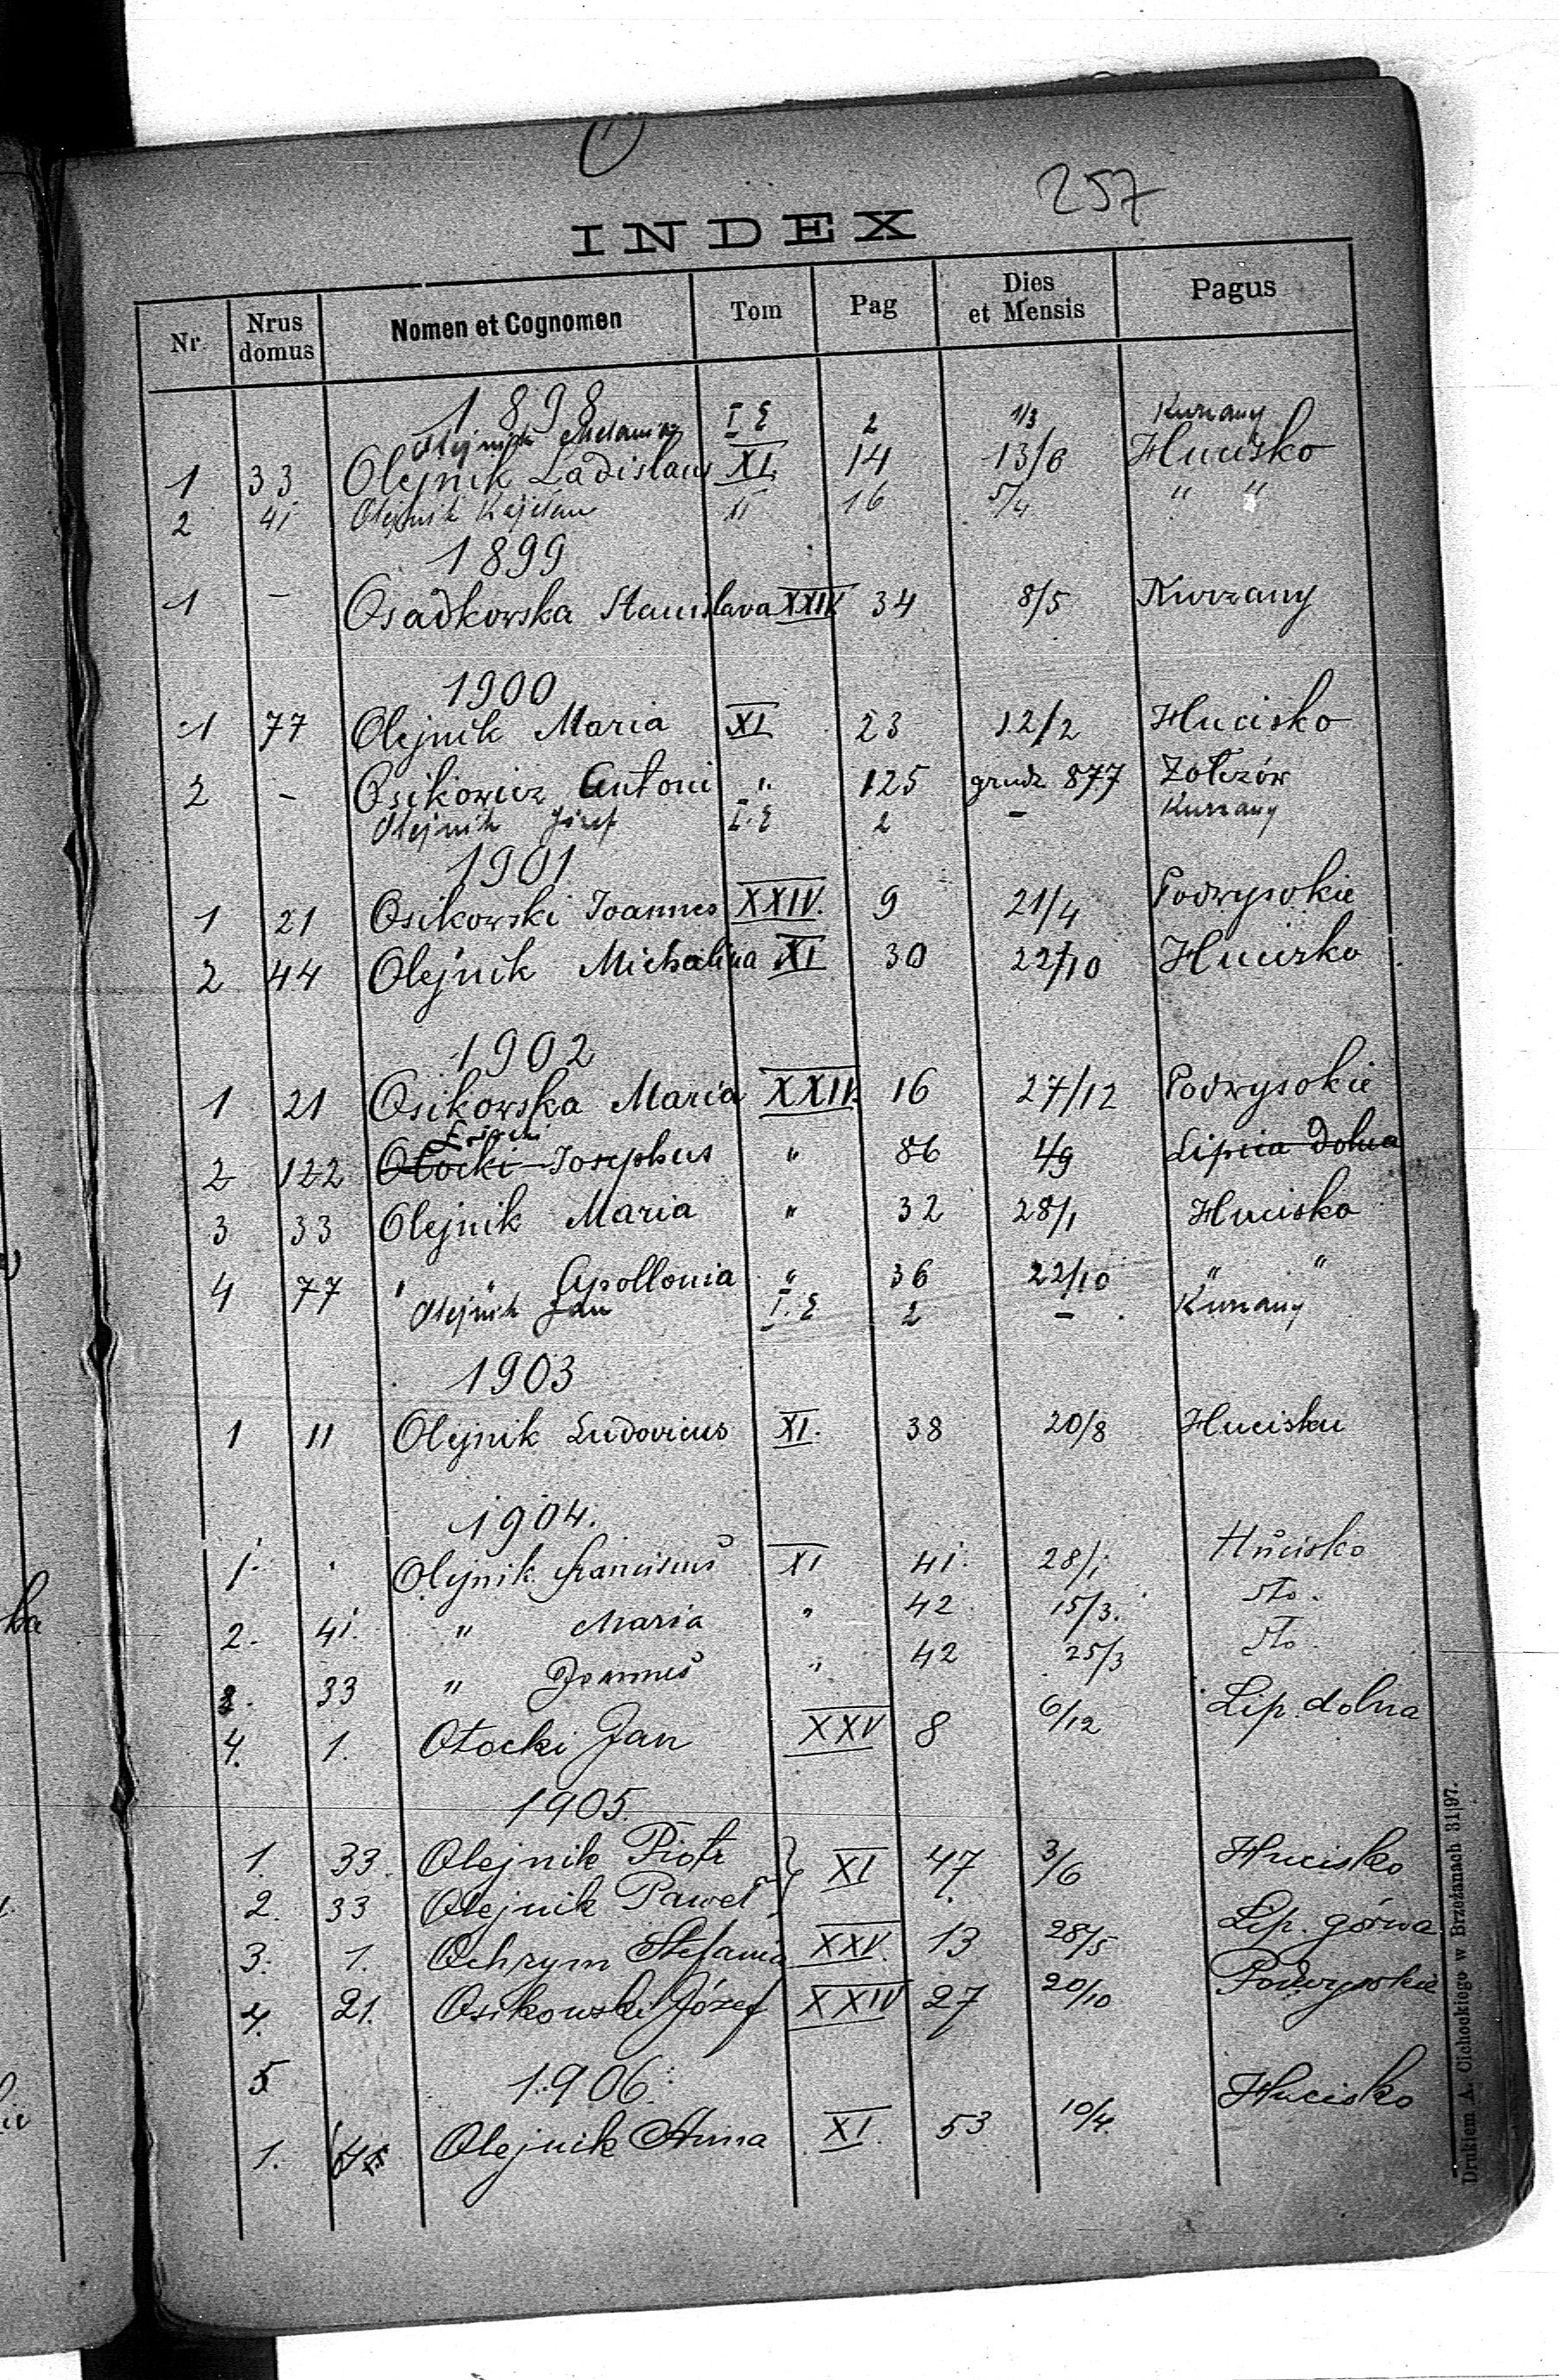 257
INDEX
Nr. Nrus domus Nomen et Cognomen Tom Pag Dies et Mensis Pagus
1898
Olejnik Melania I E 2 1/3 Kurzany
1 33 Olejnik Ladislaus XI. 14 13/6 Hucisko
2 41 Olejnik Kajetan XI 16 5/4 " "
1899
1 - Osadkowska Stanislava XXIV 34 8/5 Kurzany
1900
1 77 Olejnik Maria XI 23 12/2 Hucisko
2 - Osikowicz Antoni " 125 grudz 877 Żołczów
Olejnik Józef I. E 2 - Kurzany
1901
1 21 Osikowski Joannes XXIV. 9 21/4 Podwysokie
2 44 Olejnik Michalina XI 30 22/10 Hucisko
1902
1 21 Osikowska Maria XXIV. 16 27/12 Podwysokie
2 122 Otocki Josephus " 86 4/9 Lipica Dolna
3 33 Olejnik Maria " 32 28/1 Hucisko
4 77 " " Apollonia " 36 22/10 " "
Olejnik Jan I. E 2 - Kurzany
1903
1 11 Olejnik Ludovicus XI. 38 20/8 Hucisku
1904.
1. . Olejnik Franciscus XI 41. 28/1 Hucisko
2. 41. " Maria " 42 15/3. dto.
3. 33 " Joannes " 42 25/3 dto.
4. 1. Otocki Jan XXV 8 6/12 Lip. dolna
1905.
1. 33. Olejnik Piotr } XI 47 3/6 Hucisko
2. 33 Olejnik Paweł
3. 1. Ochrym Stefania XXV. 13 28/5 Lip. górna
4. 21. Osikowski Józef XXIV 27 20/10 Podwysokie
5
1906.
1. Olejnik Anna XI. 53 10/4. Hucisko
Drukiem A. Cichockiego w Brzeżanach 31|97.